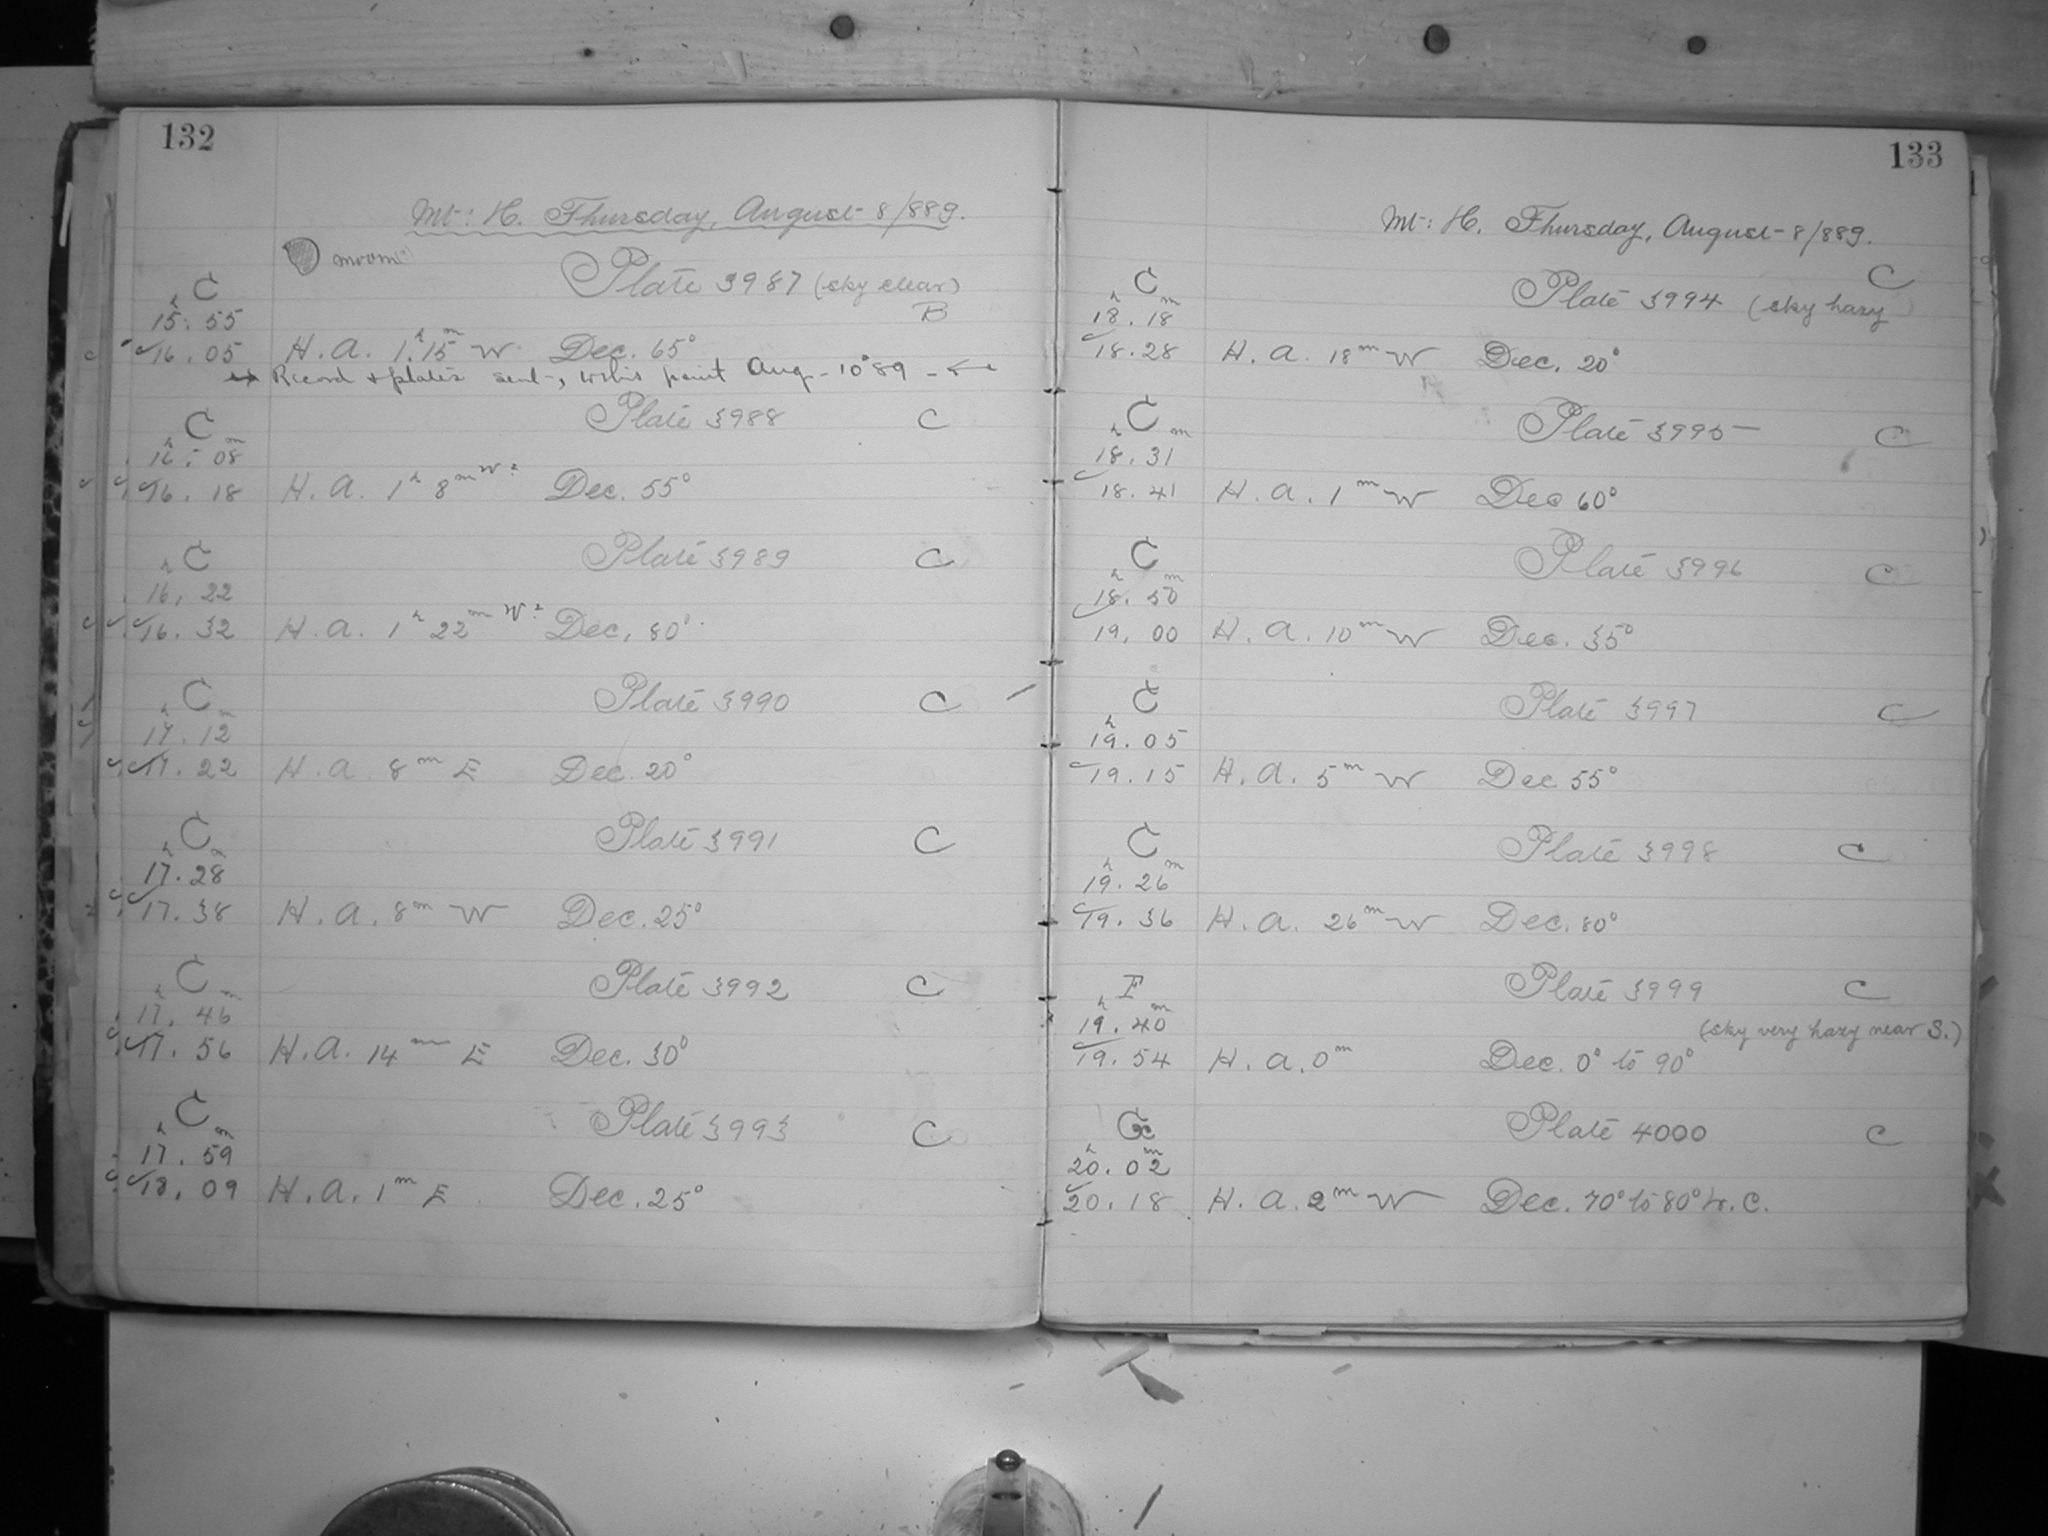 132
Mt: H. Thursday, August 8/889.
moon
C Plate 3987 (sky clear)
h
15. 55 B
16. 05 H.A. 1h 15m W Dec. 65°
Record & plates sent, to this point Aug-10°89
C Plate 3988 C
h m
16. 08
16. 18 H.A. 1h 8m W Dec. 55°
C Plate 3989 C
h
16. 22
16. 32 H.A. 1h 22m W Dec. 80°
C Plate 3990 C
h m
17. 12
17. 22 H.A. 8m E Dec. 20°
C Plate 3991 C
h m
17. 28
17. 38 H.A. 8m W Dec. 25°
C Plate 3992 C
h m
17. 46
17. 56 H.A. 14m E Dec. 30°
C Plate 3993 C
h m
17. 59
18. 09 H.A. 1m E Dec. 25°
133
Mt: H. Thursday, August 8/889.
C Plate 3994 (sky hazy) C
h m
18. 18
18. 28 H.A. 18m W Dec. 20°
C Plate 3995 C
h m
18. 31
18. 41 H.A. 1m W Dec 60°
C Plate 3996 C
h m
18. 50
19. 00 H.A. 10m W Dec. 35°
C Plate 3997 C
h
19. 05
19. 15 H.A. 5m W Dec 55°
C Plate 3998 C
h m
19. 26
19. 36 H.A. 26m W Dec. 80°
F Plate 3999 C
h m
19. 40 (sky very hazy near S.)
19. 54 H.A. 0m Dec. 0° to 90°
Plate 4000 C
h m
20. 02
20. 18 H.A. 2m W Dec. 70° to 80° C.